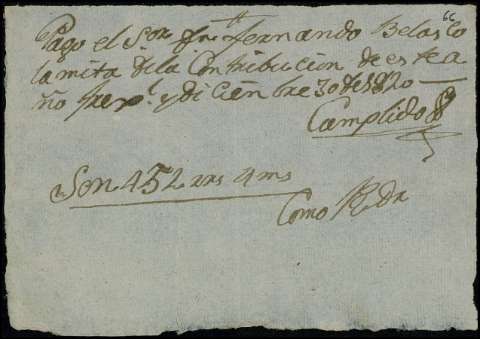 66
Pago el Sor Dn Fernando Belasco
la mita dela Contribucion de este a
ño y Diciembre 30 de 1820
Cumplido
Son 452 rrs 4 ms
Como Rdr